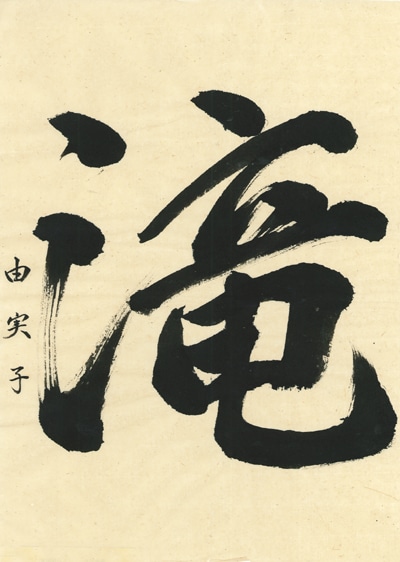 滝
由実子